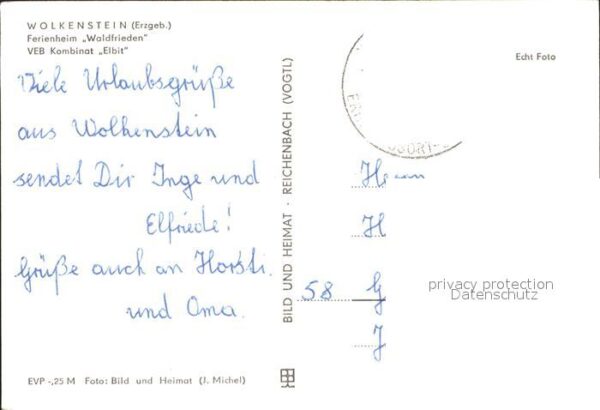 WOLKENSTEIN (Erzgeb.)
Ferienheim „Waldfrieden"
VEB Kombinat „Elbit"
Echt Foto
Viele Urlaubsgrüße
aus Wolkenstein
sendet Dir Inge und
Elfriede!
Grüße auch an Horsti.
und Oma.
BILD UND HEIMAT · REICHENBACH (VOGTL)
Herrn
H
58 G
J
privacy protection
Datenschutz
EVP -,25 M Foto: Bild und Heimat (J. Michel)